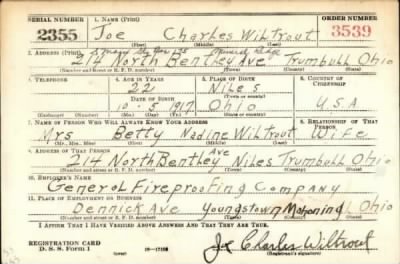 SERIAL NUMBER 1. NAME (Print) ORDER NUMBER
2355 Joe Charles Wiltrout 3539
(First) (Middle) (Last)
2. ADDRESS (Print)
214 North Bentley Ave Trumbull Ohio
(Number and street or R. F. D. number) (Town) (County) (State)
3. TELEPHONE 4. AGE IN YEARS 5. PLACE OF BIRTH 6. COUNTRY OF CITIZENSHIP
22 Niles
DATE OF BIRTH (Town or county)
10-5 1917 Ohio USA
(Exchange) (Number) (Mo.) (Day) (Yr.) (State or country)
7. NAME OF PERSON WHO WILL ALWAYS KNOW YOUR ADDRESS 8. RELATIONSHIP OF THAT PERSON
Mrs Betty Nadine Wiltrout Wife
(Mr., Mrs., Miss) (First) (Middle) (Last)
9. ADDRESS OF THAT PERSON
214 North Bentley Ave Niles Trumbull Ohio
(Number and street or R. F. D. number) (Town) (County) (State)
10. EMPLOYER'S NAME
General Fireproofing Company
11. PLACE OF EMPLOYMENT OR BUSINESS
Dennick Ave Youngstown Mahoning Ohio
(Number and street or R. F. D. number) (Town) (County) (State)
I AFFIRM THAT I HAVE VERIFIED ABOVE ANSWERS AND THAT THEY ARE TRUE.
REGISTRATION CARD
D. S. S. Form 1 (over) Joe Charles Wiltrout
(Registrant's signature)